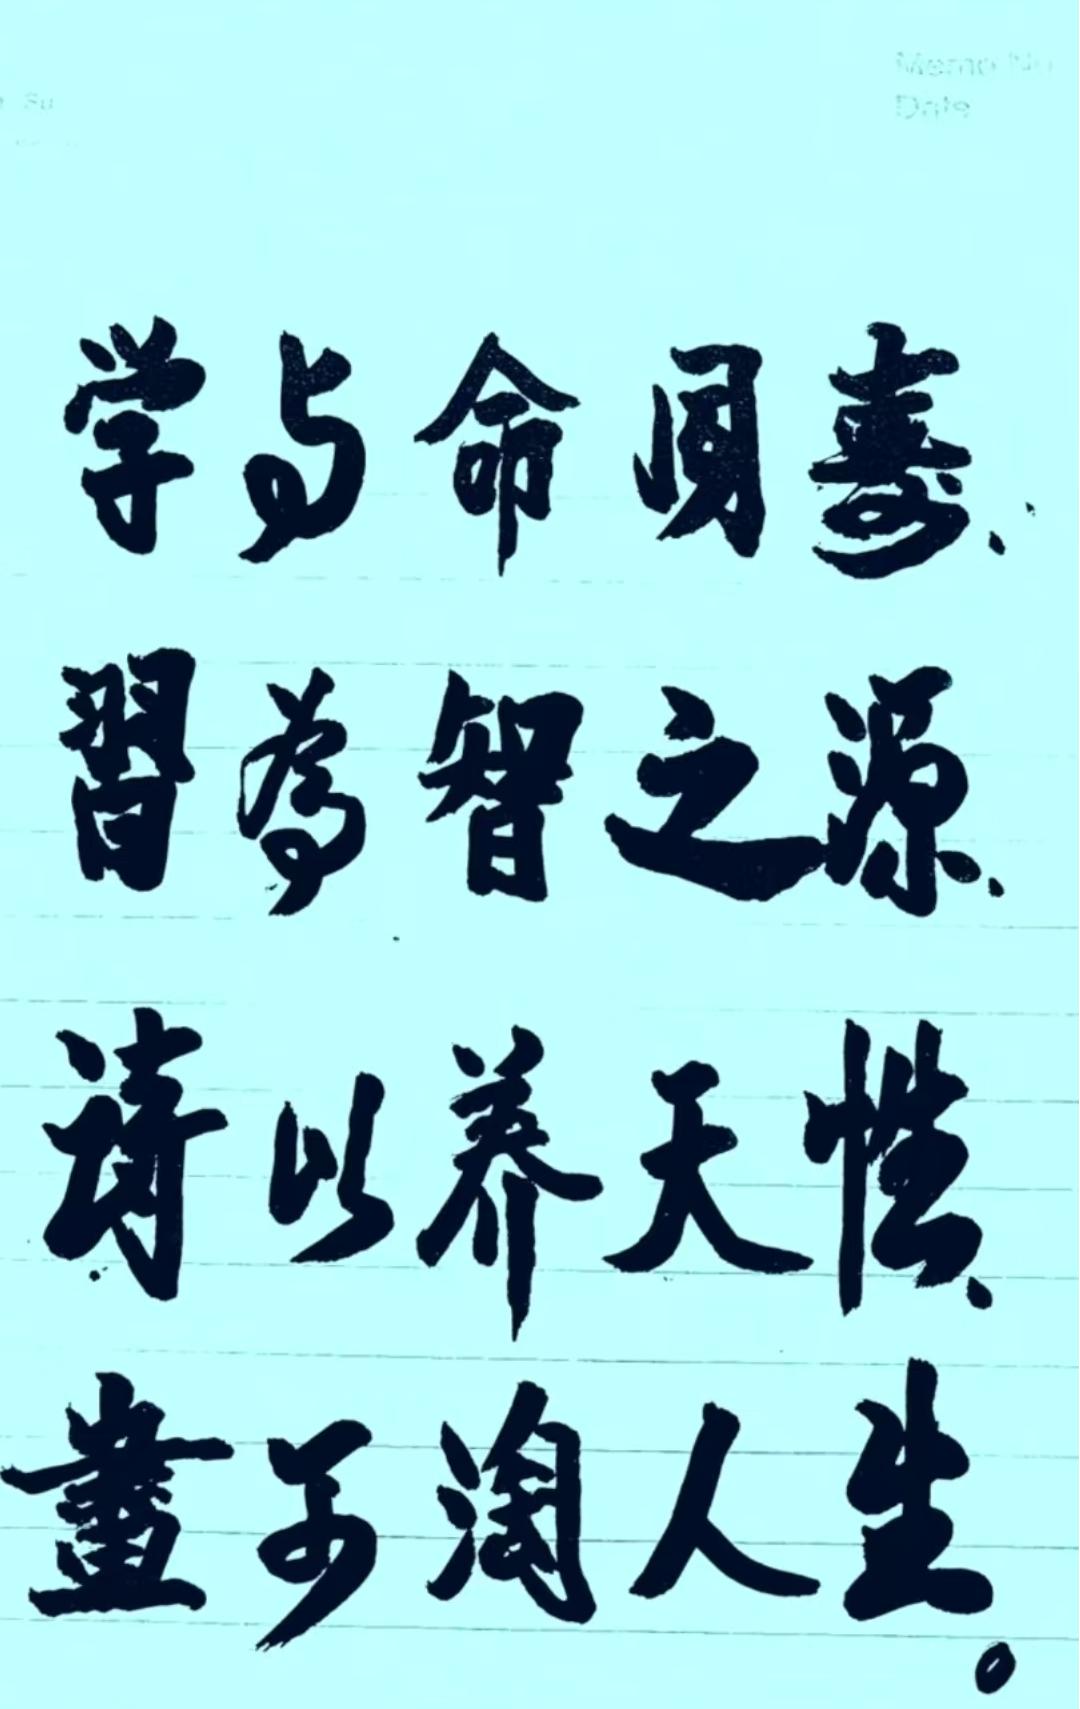 学与命同壽、
習為智之源、
诗以养天性、
畫可淘人生。
Memo No
Date